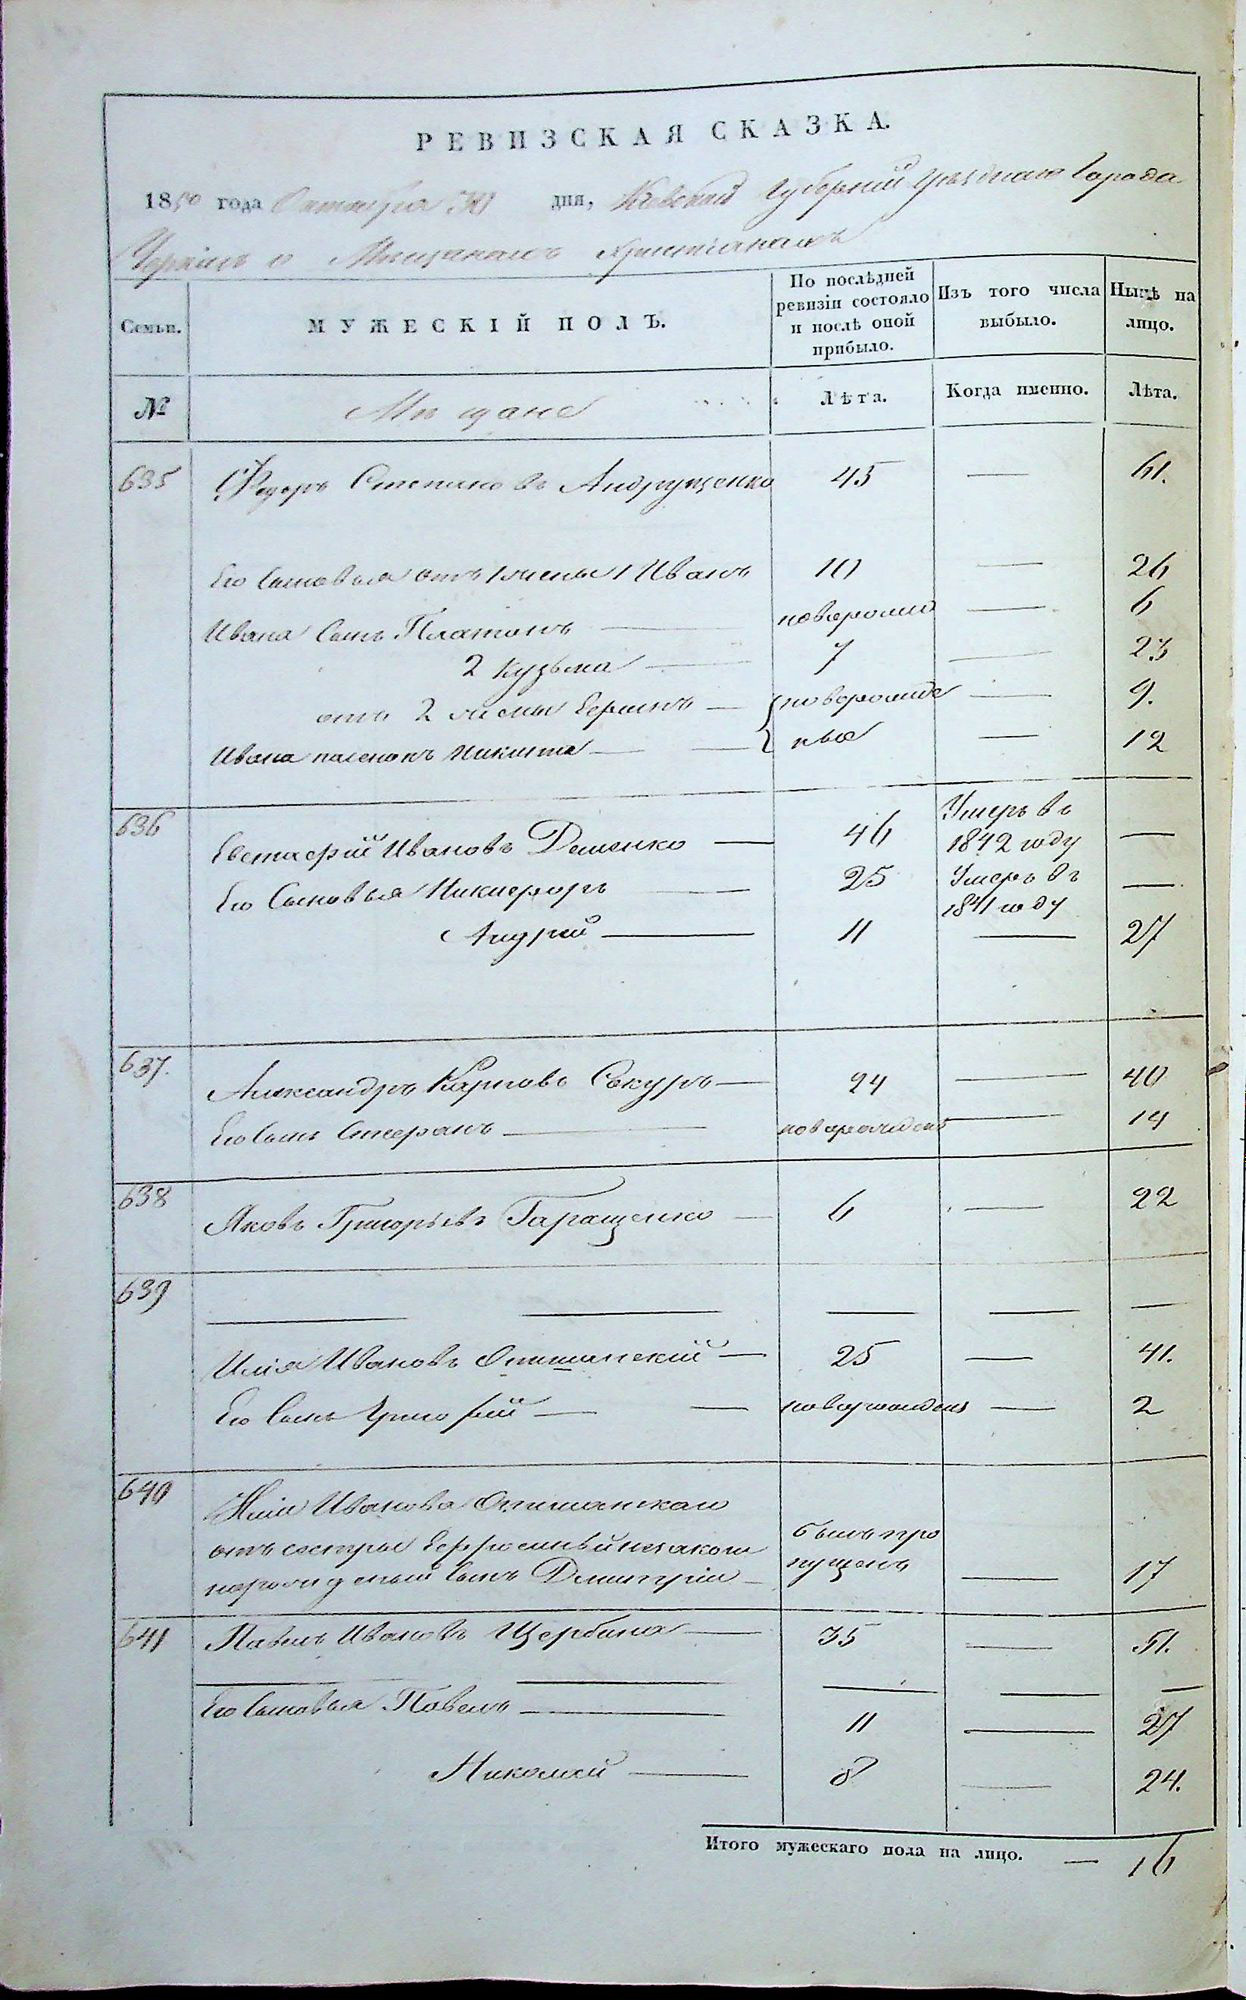 РЕВИЗСКАЯ СКАЗКА.
1850 года Октября 30 дня, Киевской Губернии Уезднаго Города
Черкасъ о Мещанахъ Христіанахъ
Семьи.
МУЖЕСКІЙ ПОЛЪ.
По послѣдней ревизіи состояло и послѣ оной прибыло.
Изъ того числа выбыло.
Нынѣ на лицо.
№ Мещане Лѣта. Когда именно. Лѣта.
635 Федоръ Степановъ Андрущенко 45 — 61.
Его Сыновья отъ 1 жены 1 Иванъ 10 — 26
Ивана Сынъ Платонъ — новорожд — 6
2 Кузьма — 7 — 23
отъ 2 жены — новорожде — 9.
Ивана пасенокъ Никита — ные — 12
636 Евстафій Ивановъ Деменко — 46 Умеръ въ 1842 году —
Его Сыновья Никифоръ — 25 Умеръ въ 1841 году —
Андрей — 11 — 27
637. Александръ Карповъ Сокуръ — 24 — 40
Его Сынъ Стефанъ — новорожден — 14
638 Яковъ Григорьевъ Гаращенко — 6 — 22
639 — — — — —
Илія Ивановъ Опишанскій — 25 — 41.
Его Сынъ Григорій — — новорожден — 2
640 Иліи Иванова Опишанскаго
отъ сестры Ефросиньи незакон былъ про
норожденый Сынъ Дмитрій — пущенъ — 17
641 Павелъ Ивановъ Щербина — 35 — 51.
— — — —
Его Сыновья Павелъ — 11 — 27
Николай — 8 — 24.
Итого мужескаго пола на лицо. — 16